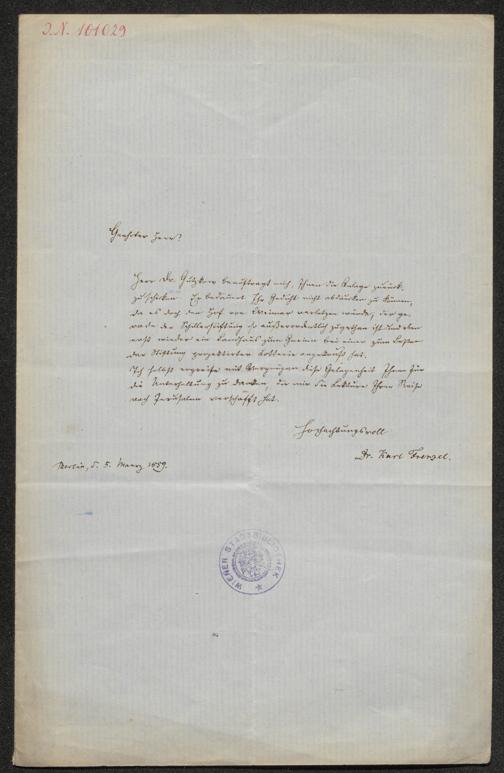 J.N. 101029
Geehrter Herr!
Herr Dr. Gutzkow beauftragt mich, Ihnen die Anlage zurück-
zuschicken. Er bedauert Ihr Gedicht nicht abdrucken zu können,
da es doch den Hof von Weimar verletzen würde, der ge-
rade der Schillerstiftung so außerordentlich zugethan ist und dem
erst wieder ein Landhaus zum Gewinn bei einer zum Besten
der Stiftung projektirten Lotterie angekauft hat.
Ich selbst ergreife mit Vergnügen diese Gelegenheit Ihnen für
die Unterhaltung zu danken, die mir die Lektüre Ihrer Reise
nach Jerusalem verschafft hat.
Hochachtungsvoll
Dr. Karl Frenzel.
Berlin, d. 5. Maerz 1859.
WIENER STADTBIBLIOTHEK